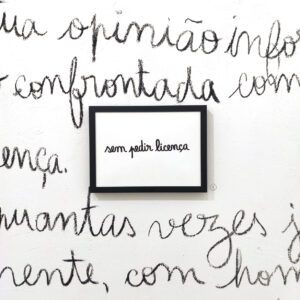 ua opinião info
confrontada com
sem pedir licença
ença.
quantas vezes j
com hom